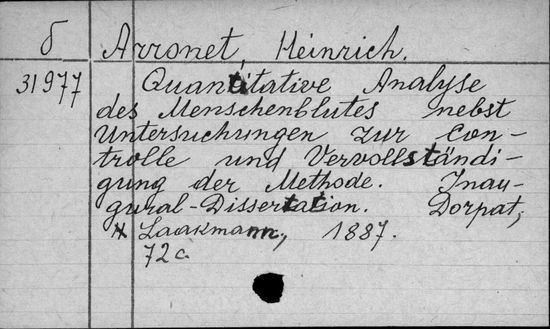 б Arronet, Heinrich.
31977 Quantitative Analyse
des Menschenblutes nebst
Untersuchungen zur Con-
trolle und Vervollständi-
gung der Methode. Inau-
gural-Dissertation. Dorpat,
Laakmann, 1887.
72 c.